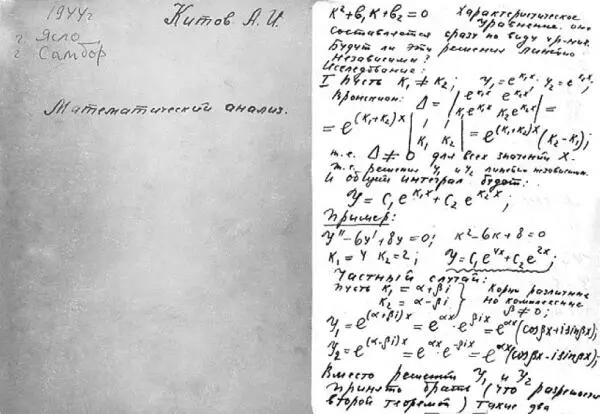 1944 г
г. Ясло
г Самбор
Китов А. И.
Математический анализ.
k² + b₁ k + b₂ = 0 Характеристическое
уравнение. оно
составляется сразу по виду ур-ния.
Будут ли эти решения линейно
независимы?
Исследование:
I Пусть K₁ ≠ K₂; y₁ = e^{k₁x}; y₂ = e^{k₂x};
Вронскиан: Δ = | e^{k₁x} e^{k₂x} | =
| k₁e^{k₁x} k₂e^{k₂x} |
= e^{(k₁+k₂)x} | 1 1 | = e^{(k₁+k₂)x} (k₂-k₁);
| k₁ k₂ |
т.е. Δ ≠ 0 для всех значений x.
т.е. решения y₁ и y₂ линейно независимы.
И общий интеграл будет:
y = C₁e^{k₁x} + C₂ e^{k₂x};
Пример:
y'' - 6y' + 8y = 0; k² - 6k + 8 = 0
k₁ = 4 k₂ = 2; y = C₁e^{4x} + C₂e^{2x};
Частный случай:
Пусть k₁ = α + βi } Корни различные
k₂ = α - βi } но комплексные
β ≠ 0;
y₁ = e^{(α+βi)x} = e^{αx} · e^{βix} = e^{αx}(cosβx + i sinβx);
y₂ = e^{(α-βi)x} = e^{αx} · e^{-βix} = e^{αx}(cosβx - i sinβx);
Вместо решений y₁ и y₂
принято брать (что разрешено
второй теоремой) такие два